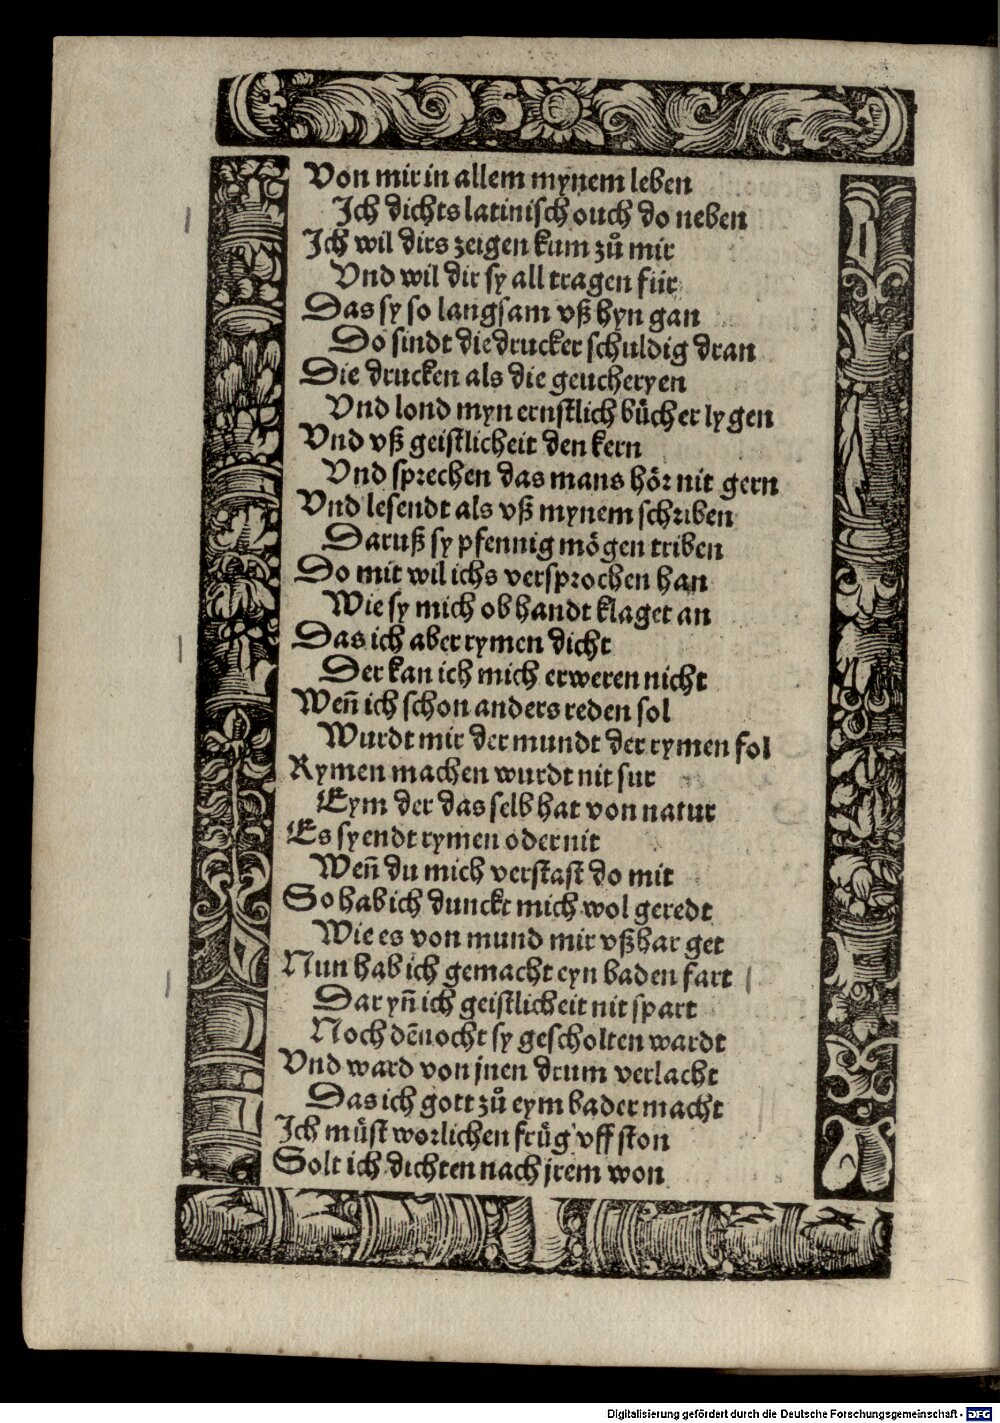 Von mir in allem mynem leben
Ich dichts latinisch ouch do neben
Ich wil dirs zeigen kum zů mir
Vnd wil dir sy all tragen für
Das sy so langsam vß hyn gan
Do sindt die drucker schuldig dran
Die drucken als die geucheryen
Vnd lond myn ernstlich bücher lygen
Vnd vß geistlicheit den kern
Vnd sprechen das mans hör nit gern
Vnd lesendt als vß mynem schriben
Daruß sy pfennig mögen triben
Do mit wil ichs versprochen han
Wie sy mich ob handt klaget an
Das ich aber rymen dicht
Der kan ich mich erweren nicht
Weñ ich schon anders reden sol
Wurdt mir der mundt der rymen fol
Rymen machen wurdt nit sur
Eym der das selb hat von natur
Es syendt rymen oder nit
Weñ du mich verstast do mit
So hab ich dunckt mich wol geredt
Wie es von mund mir vßhar get
Nun hab ich gemacht eyn baden fart
Dar yñ ich geistlicheit nit spart
Noch dēnocht sy gescholten wardt
Vnd ward von jnen drum verlacht
Das ich gott zů eym bader macht
Ich müst worlichen früg vff ston
Solt ich dichten nach jrem won
Digitalisierung gefördert durch die Deutsche Forschungsgemeinschaft - DFG